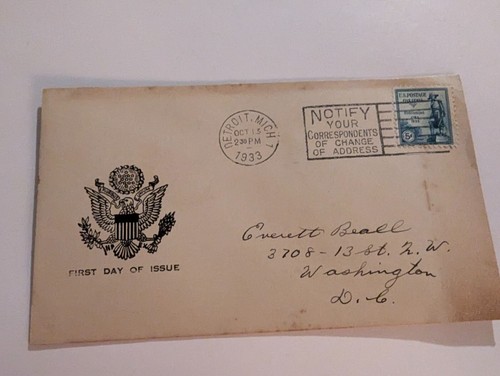 DETROIT, MICH. 1
OCT 13
2 30 PM
1933
NOTIFY
YOUR
CORRESPONDENTS
OF CHANGE
OF ADDRESS
U.S. POSTAGE
5¢
FIRST DAY OF ISSUE
Everett Beall
3708-13 St. N.W.
Washington
D.C.